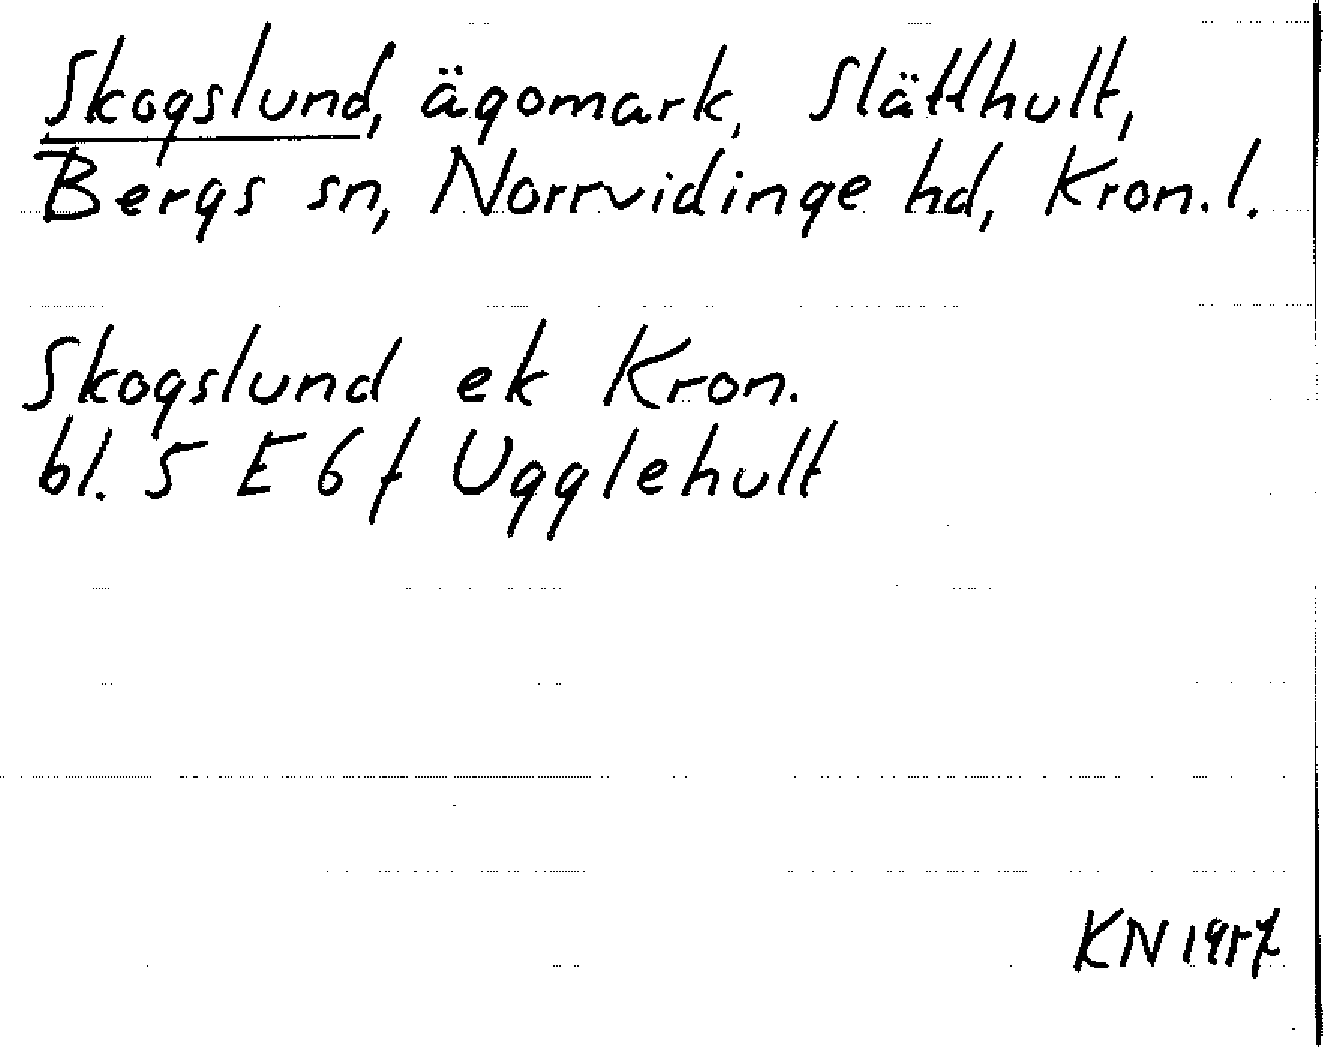 Skogslund, ägomark, Slätthult,
Bergs sn, Norrvidinge hd, Kron. l.
Skogslund ek Kron.
bl. 5 E 6 f Ugglehult
KN 1957